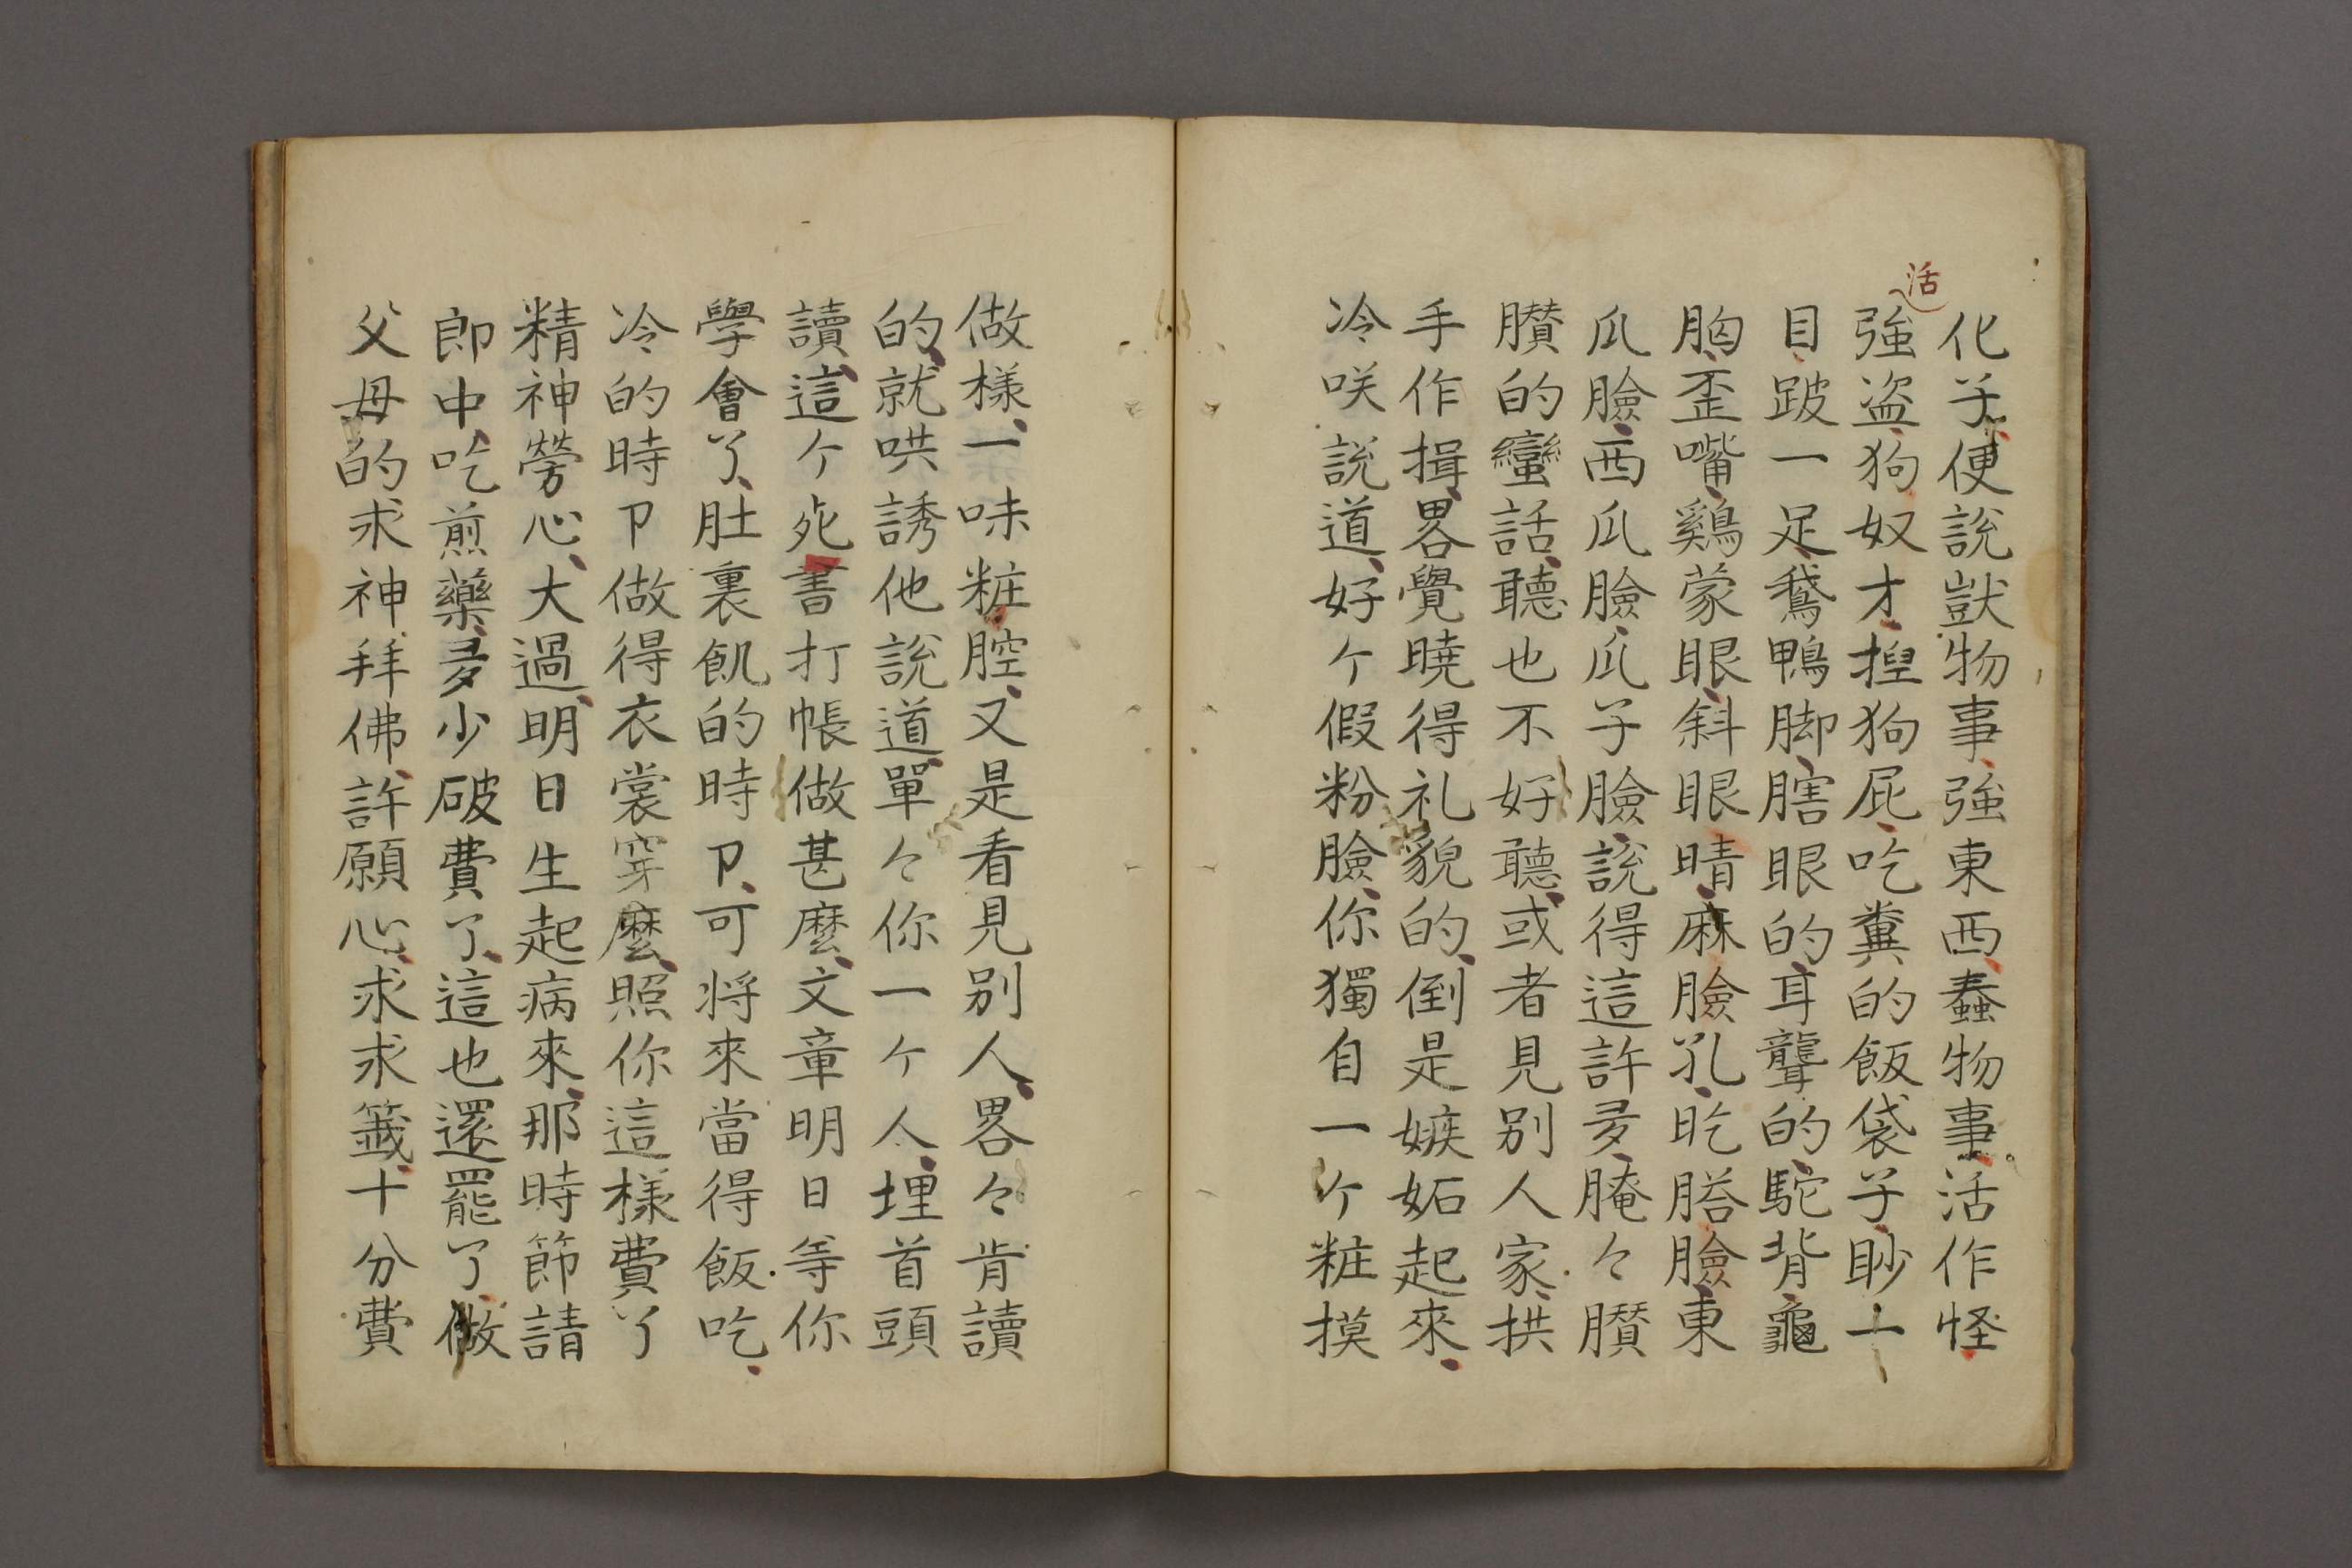 化子、便說獃物事、強東西、蠢物事、活作怪、
活
強盗、狗奴才、揑狗屁、吃糞的飯袋子、眇一
目、跛一足、鵞鴨脚、瞎眼的、耳聾的、駝背、龜
胸、歪嘴、鷄蒙眼、斜眼晴、麻臉孔、盵䐛臉、東
瓜臉、西瓜臉、瓜子臉、說得這許多、腌々臢
臢的蠻話、聽也不好聽、或者見别人家、拱
手作揖、畧覺曉得礼貌的、倒是嫉妬起來、
冷咲說道、好个假粉臉、你獨自一个粧摸
做樣、一味粧腔、又是看見别人、畧々肯讀
的、就哄誘他說道、單々你一个人、埋首頭
讀、這个死書打帳做甚麼、文章明日等你
學會了、肚裏飢的時卩、可将來當得飯吃、
冷的時卩做得衣裳穿麼、照你這樣費了
精神勞心、大過、明日生起病來、那時節請
郎中、吃煎藥、多少破費了、這也還罷了、做
父母的求神拜佛、許願心、求求籤、十分費